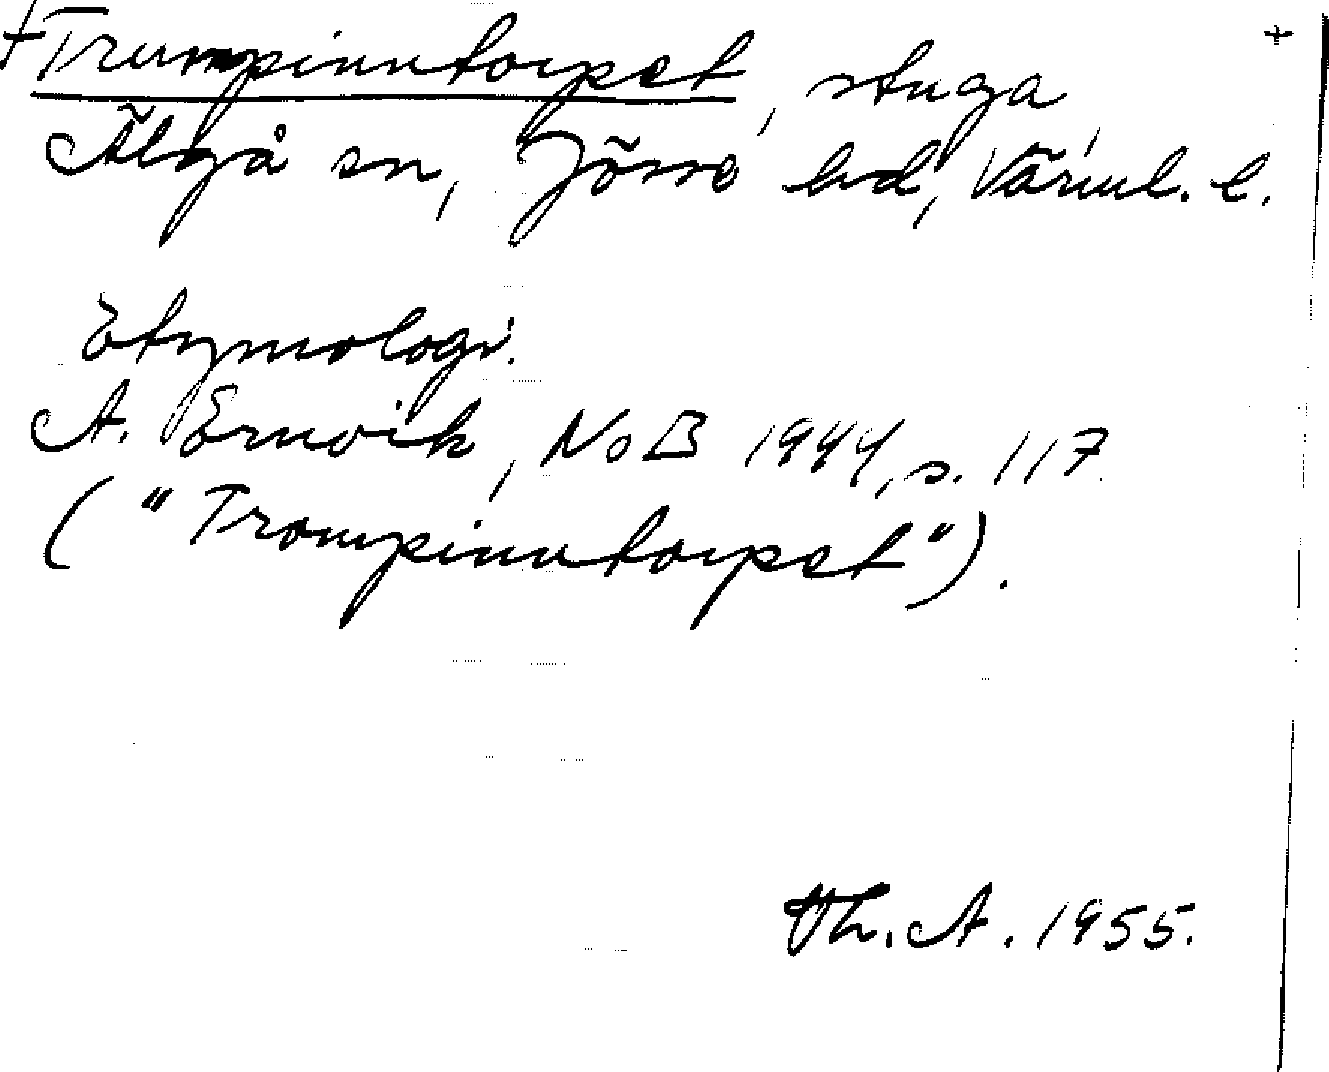 †Trumpinntorpet, stuga +
Älgå sn, Jösse hd, Värml. l.
Etymologi.
A. Ernvik, NoB 1944, s. 117.
("Trompinntorpet").
Th. A. 1955.